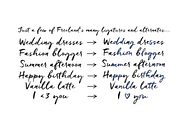 Just a few of Freeland's many ligatures and alternates...
Wedding dresses → Wedding dresses
Fashion blogger → Fashion blogger
Summer afternoon → Summer afternoon
Happy birthday → Happy birthday
Vanilla latte → Vanilla latte
I <3 you → I ♡ you